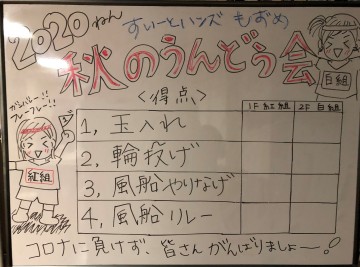 2020ねん
すいーとハンズ もずめ
秋のうんどう会
<得点>
1F 紅組 2F 白組
1, 玉入れ
2, 輪投げ
3, 風船やりなげ
4, 風船リレー
ガンバレー!!
フレーフレー!!
紅組
白組
コロナに負けず、皆さんがんばりましょ〜!